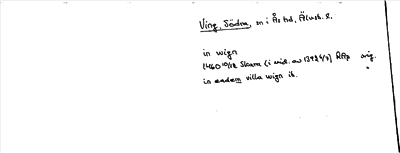 Ving, Södra, sn i Ås hd, Älvsb. l.
in wign
1460 10/12 Skara (i vid. av 1392 4/7) RAp orig.
in eadem villa wign ib. "